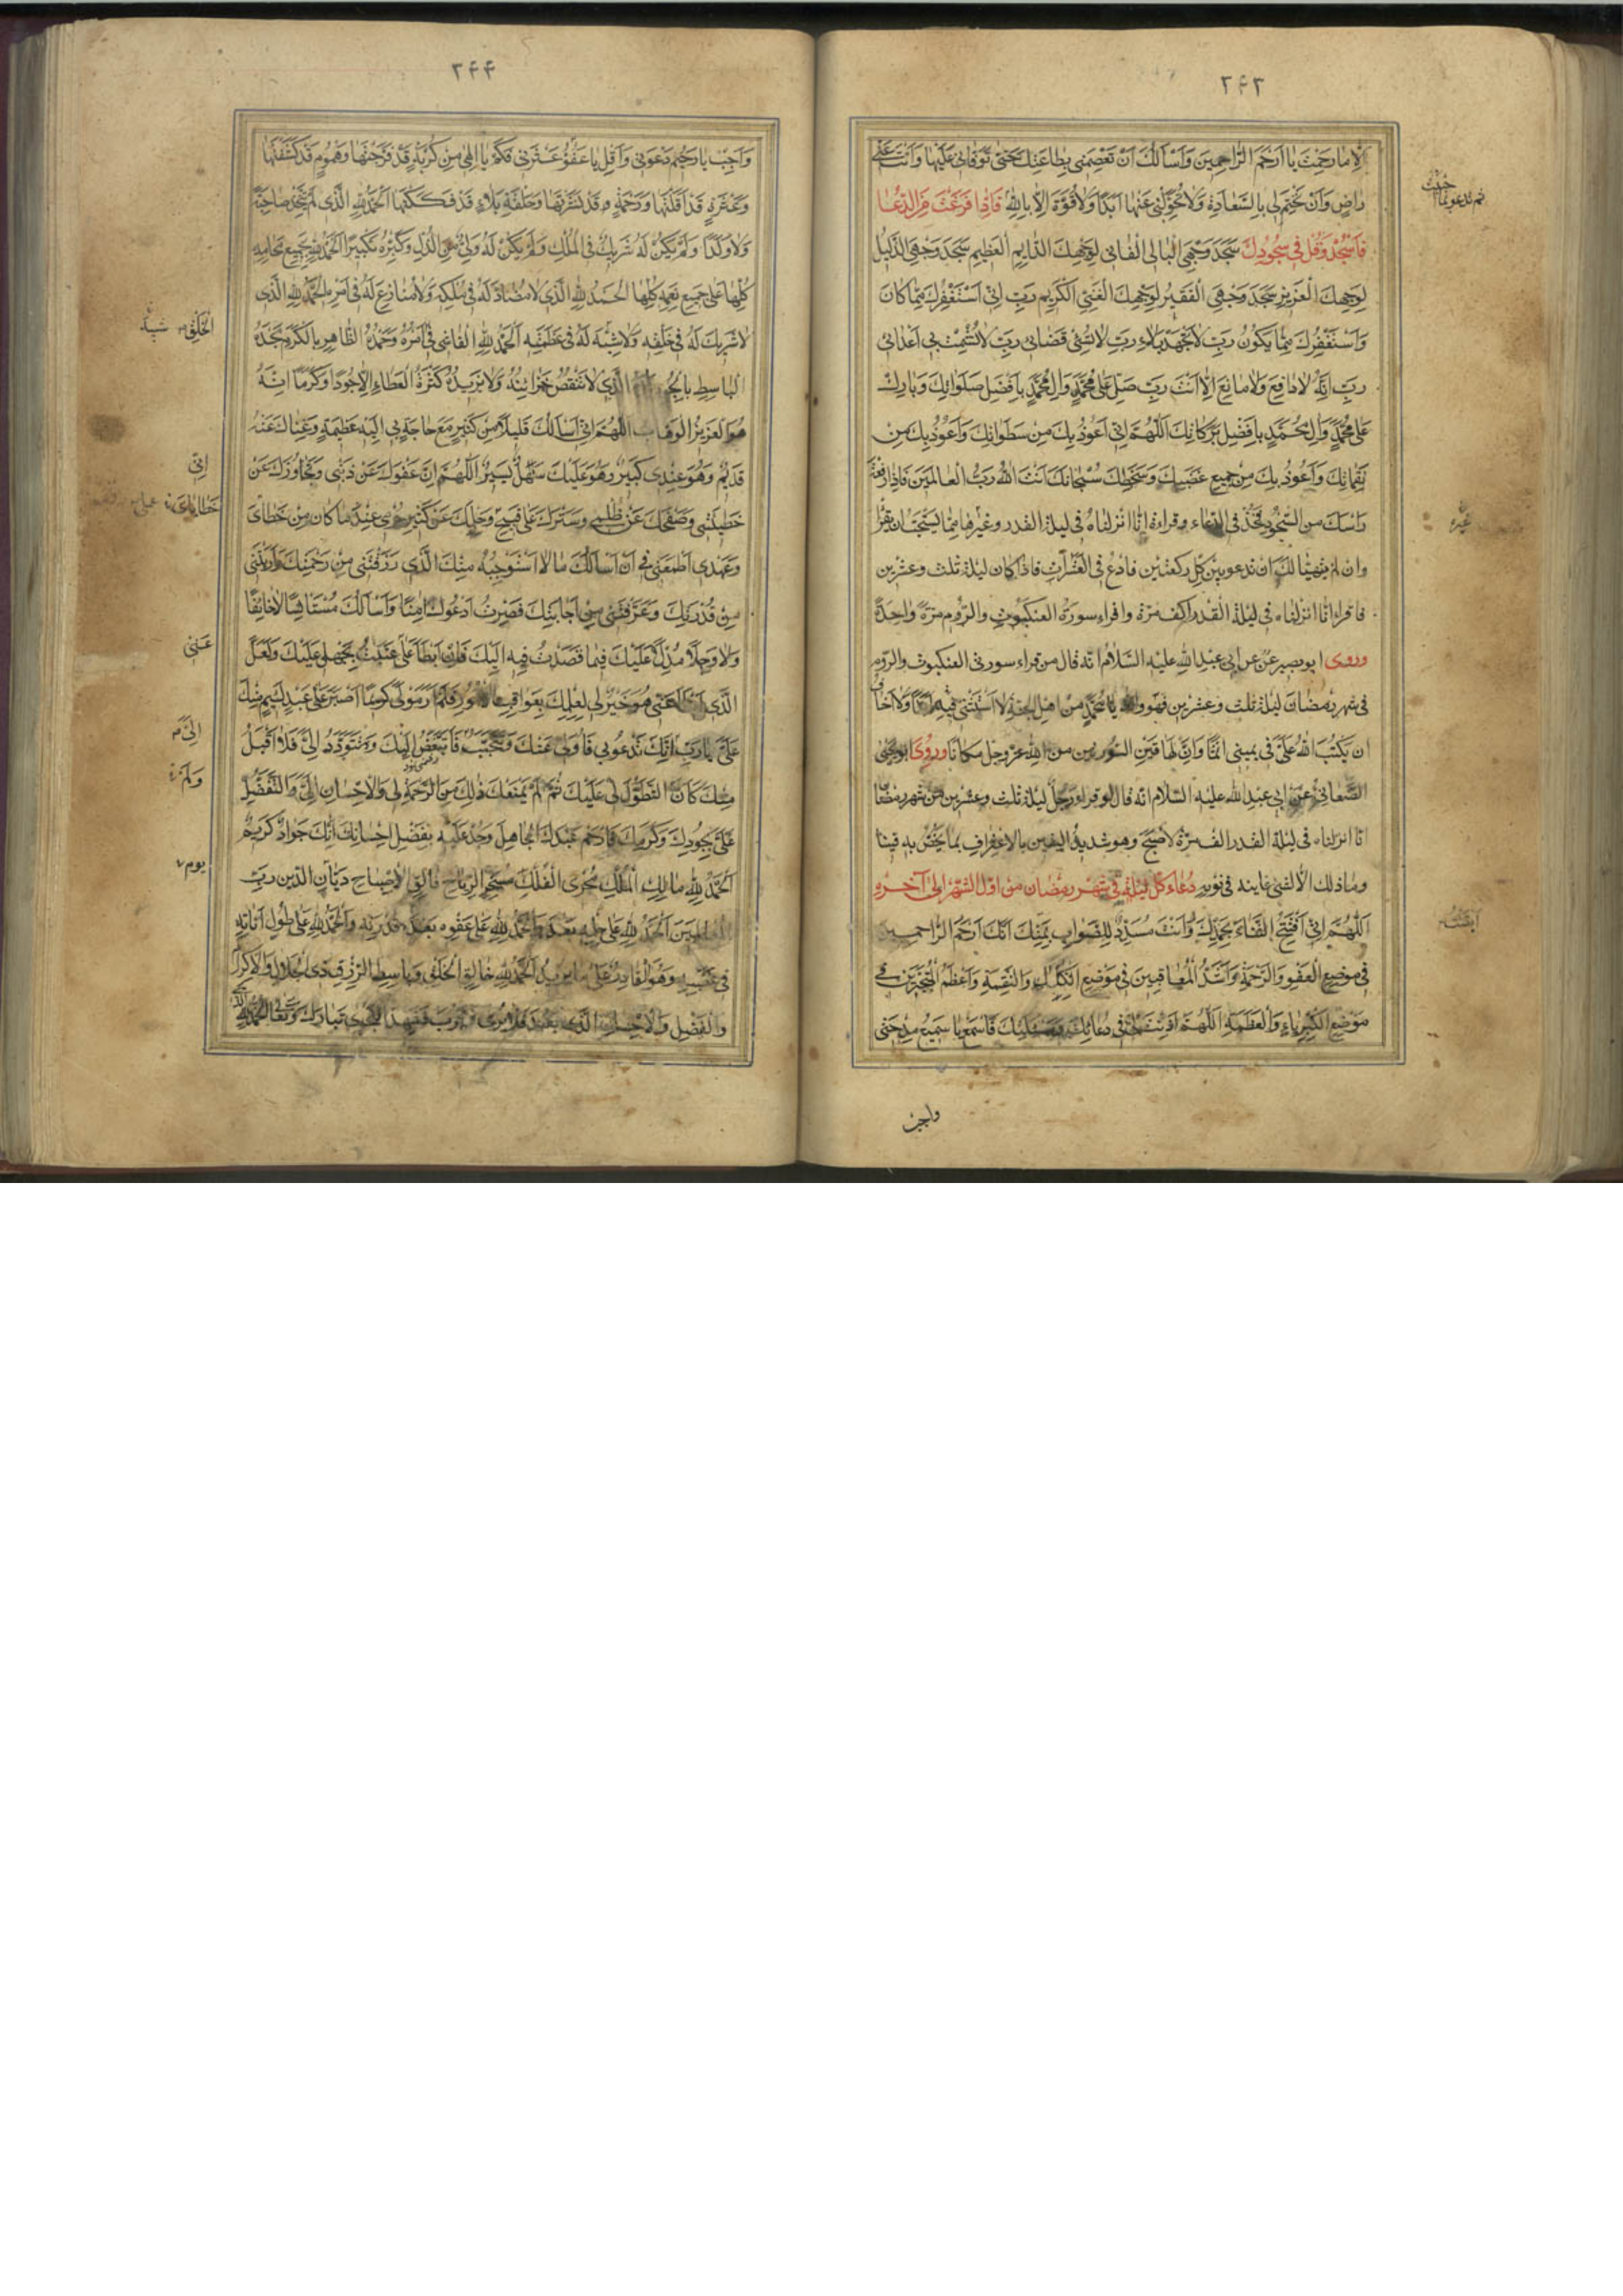 ۲۴۳
إلا ما رحمت يا أرحم الراحمين وأسألك أن تعصمني بطاعتك حتى توفاني عليها وأنت عني
راض وأن تختم لي بالسعادة ولا تحولني عنها أبدا ولا قوة إلا بالله فإذا فرغت من الدعاء
فاسجد وقل في سجودك سجد وجهي البالي الفاني لوجهك الدائم العظيم سجد وجهي الذليل
لوجهك العزيز سجد وجهي الفقير لوجهك الغني الكريم رب إني أستغفرك مما كان
وأستغفرك مما يكون رب لا تجهد بلائي رب لا تسئ قضائي رب لا تشمت بي أعدائي
رب إنه لا دافع ولا مانع إلا أنت رب صل على محمد وآل محمد بأفضل صلواتك وبارك
على محمد وآل محمد بأفضل بركاتك اللهم إني أعوذ بك من سطواتك وأعوذ بك من
نقماتك وأعوذ بك من جميع غضبك وسخطك سبحانك أنت الله رب العالمين فإذا رفعت
رأسك من السجود فخذ في الدعاء وقراءة إنا أنزلناه في ليلة القدر وغيرها مما يستحب أن يقرأ
وان لم يتهيأ لك ان تدعو بين كل ركعتين فادع في العشرات فاذا كان ليلة ثلث وعشرين
فاقراء انا انزلناه في ليلة القدر الف مرة واقراء سورة العنكبوت والروم مرة واحدة
وروى ابو بصير عن ابي عبد الله عليه السلام انه قال من قراء سورتي العنكبوت والروم
في شهر رمضان ليلة ثلث وعشرين فهو والله يا محمد من اهل الجنة لا استثني فيه ابدا ولا اخاف
ان يكتب الله علي في يميني اثما وان لهاتين السورتين من الله عز وجل مكانا وروى ابو يحيى
الصنعاني عن ابي عبد الله عليه السلام انه قال لو قراء رجل ليلة ثلث وعشرين من شهر رمضان
انا انزلناه في ليلة القدر الف مرة لاصبح وهو شديد اليقين بالاعتراف بما يختص به فينا
وما ذلك الا لشئ عاينه في نومه دعاء كل ليلة في شهر رمضان من اول الشهر الى آخره
اللهم إني أفتتح الثناء بحمدك وأنت مسدد للصواب بمنك أنك أرحم الراحمين
في موضع العفو والرحمة وأشد المعاقبين في موضع النكال والنقمة وأعظم المتجبرين في
موضع الكبرياء والعظمة اللهم أذنت لي في دعائك ومسئلتك فاسمع يا سميع مدحتي
واجب
ثم تدعو بما
غيره
۲۴۴
وأجب يا رحيم دعوتي وأقل يا غفور عثرتي فكم يا إلهي من كربة قد فرجتها وهموم قد كشفتها
وعثرة قد أقلتها ورحمة قد نشرتها وحلقة بلاء قد فككتها الحمد لله الذي لم يتخذ صاحبة
ولا ولدا ولم يكن له شريك في الملك ولم يكن له ولي من الذل وكبره تكبيرا الحمد لله بجميع محامده
كلها على جميع نعمه كلها الحمد لله الذي لا مضاد له في ملكه ولا منازع له في أمره الحمد لله الذي
لا شريك له في خلقه ولا شبه له في عظمته الحمد لله الفاشي في أمره وحمده الظاهر بالكرم مجده
الباسط بالجود الذي لا تنقص خزائنه ولا تزيده كثرة العطاء إلا جودا وكرما إنه
هو العزيز الوهاب اللهم إني أسألك قليلا من كثير مع حاجة بي إليه عظيمة وغناك عنه
قديم وهو عندي كبير وهو عليك سهل يسير اللهم إن عفوك عن ذنبي وتجاوزك عن
خطيئتي وصفحك عن ظلمي وسترك على قبيح وحلمك عن كثير جرمي عند ما كان من خطائي
وعمدي أطمعني في أن أسألك ما لا أستوجبه منك الذي رزقتني من رحمتك وأريتني
من قدرتك وعرفتني من إجابتك فصرت أدعوك آمنا وأسألك مستأنسا لا خائفا
ولا وجلا مدلا عليك فيما قصدت فيه إليك فإن أبطأ علي عتبت بجهلي عليك ولعل
الذي أبطأ عني هو خير لي لعلمك بعاقبة الأمور فلم أر مولى كريما أصبر على عبد لئيم منك
علي يا رب إنك تدعوني فأولي عنك وتتحبب فأتبغض إليك وتتودد إلي فلا أقبل
منك كأن التطول لي عليك ثم لم يمنعك ذلك من الرحمة لي والإحسان إلي والتفضل
علي بجودك وكرمك فارحم عبدك الجاهل وجد عليه بفضل إحسانك إنك جواد كريم
الحمد لله مالك الملك مجري الفلك مسخر الرياح فالق الإصباح ديان الدين رب
العالمين الحمد لله على حلمه بعد علمه الحمد لله على عفوه بعد قدرته والحمد لله على طول أناته
في غضبه وهو القادر على ما يريد الحمد لله خالق الخلق وباسط الرزق ذي الجلال والإكرام
والفضل والإحسان الذي بعد فلا يرى وقرب فشهد النجوى تبارك وتعالى الحمد لله
الخلق
إني
خطاياي
عملي
عني
إلي
ولم أر
يوم